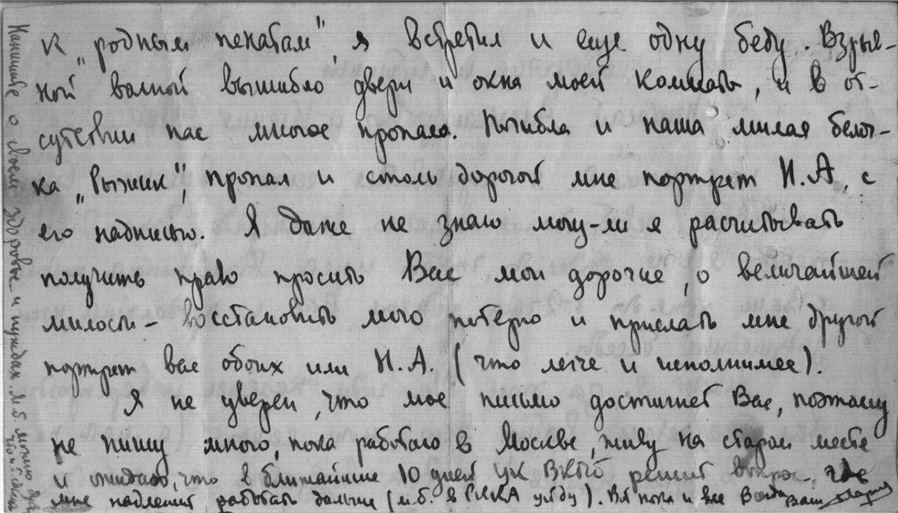 к "родным пенатам", я встретил и еще одну беду. Взрыв-
ной волной вышибло двери и окна моей комнаты, и в от-
сутствии нас многое пропало. Погибла и наша милая белоч-
ка "Рыжик", пропал и столь дорогой мне портрет Н.А. с
его надписью. Я даже не знаю могу-ли я расчитывать
получить право просить Вас мои дорогие, о величайшей
милости - восстановить мою потерю и прислать мне другой
портрет вас обоих или Н.А. (что легче и исполнимее).
Я не уверен, что мое письмо достигнет Вас, поэтому
не пишу много, пока работаю в Москве, живу на старом месте
и ожидаю, что в ближайшие 10 дней УК решит вопрос, где
мне надлежит работать дальше (м.б. в РККА уйду). Вот пока и все Ваш
Напишите о своем здоровье и нуждах. М.б. можно